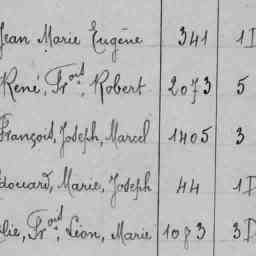 Jean Marie Eugène 341 1D
René, Fr.ois, Robert 2073 5
François, Joseph, Marcel 1405 3
Edouard, Marie, Joseph 44 1D
Elie, Fr.ois, Léon, Marie 1083 3D